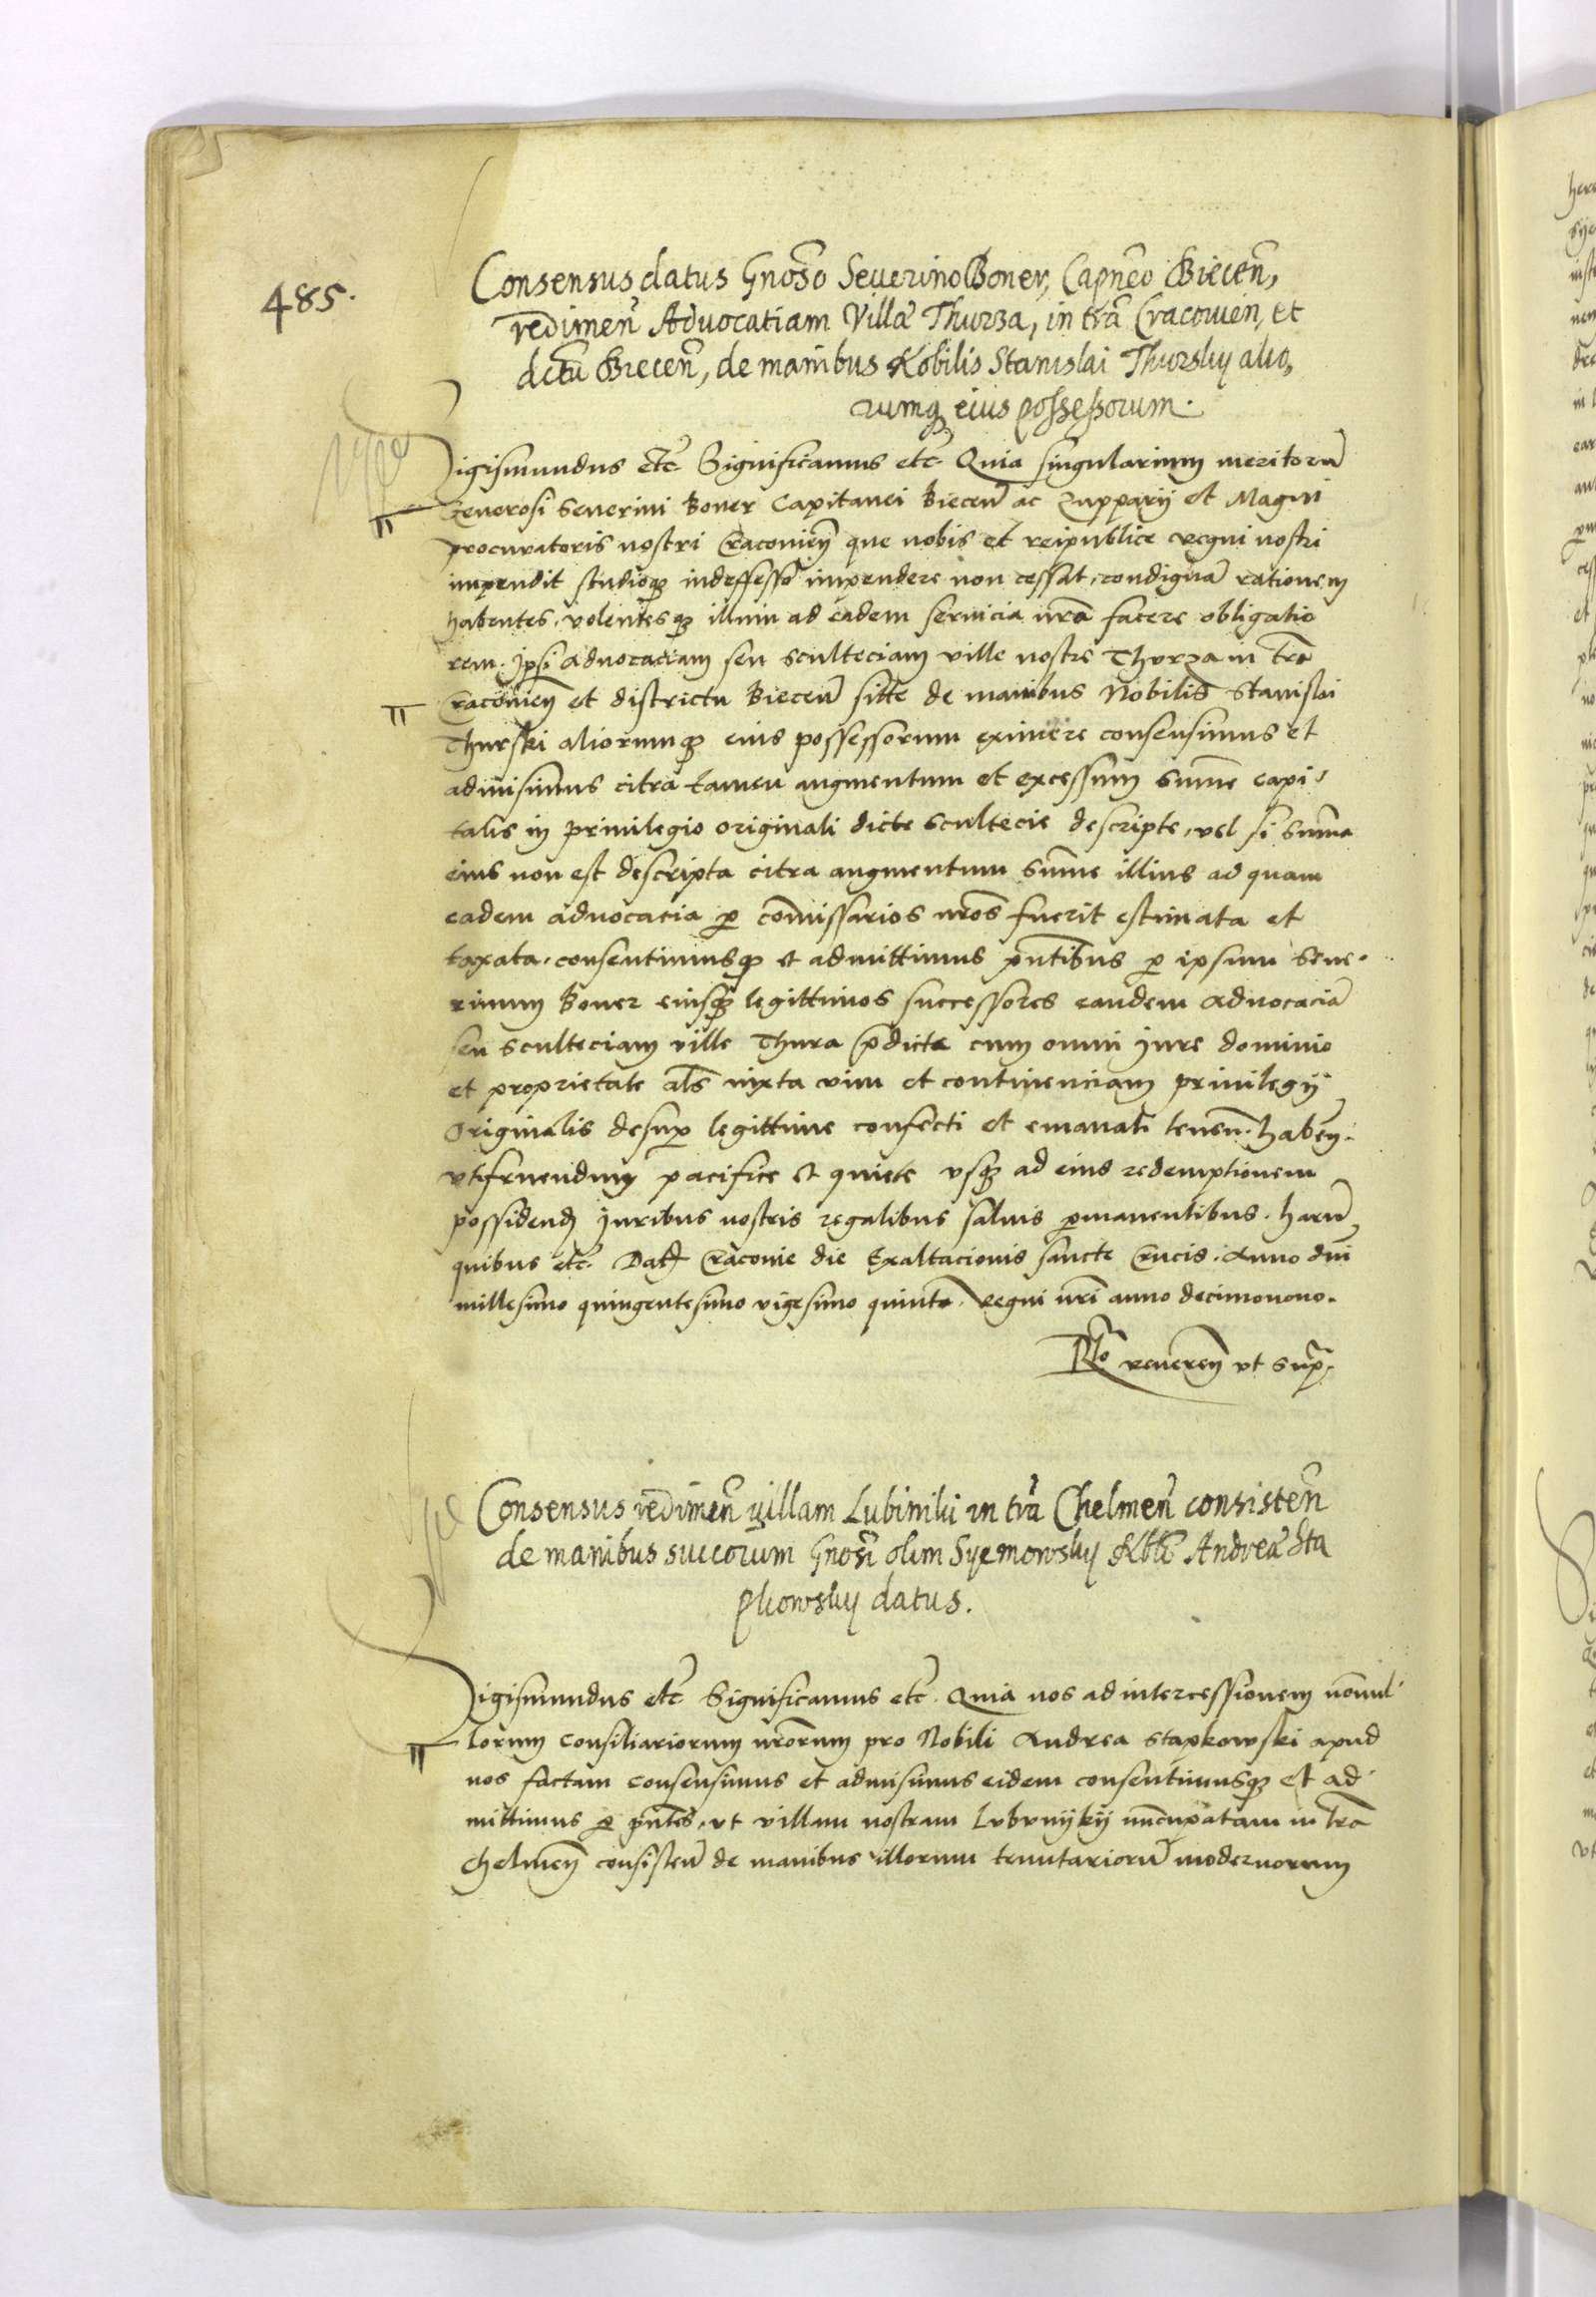 485.
Consensus datus Gnoso Seuerino Boner, Capneo Biecen,
redimen Advocatiam Villæ Thurza, in tra Cracouien, et
dctu Biecen, de manibus Nobilis Stanislai Thurskij alio,
rumq eius possessorum.
Sigismundus etc Significamus etc Quia singularium meritoru
Generosi Seuerini Boner Capitanei Biecen ac Zupparij et Magni
procuratoris nostri Cracouien que nobis et reipublice regni nostri
impendit studioq indeffesso impendere non cessat, condigna rationem
habentes, volentesq illum ad eadem seruicia nra facere obligatio
rem. Ipsi aduocaciam seu sculteciam ville nostre Thurza in tra
Cracouien et districtu Biecen sitte de manibus Nobilis Stanislai
Thurski aliorumq eius possessorum eximere consensimus et
admisimus citra tamen augmentum et excessum summe capi
talis in priuilegio originali dicte scultecie descripte, vel si summa
eius non est descripta citra augmentum summe illius ad quam
eadem aduocacia p commissarios nros fuerit estimata et
taxata. consentimusq et admittimus pntibus p ipsum Seue
rinum Boner eiusq legittimos successores eandem aduocacia
seu sculteciam ville Thura pdicta cum omni iure dominio
et proprietate als iuxta vim et continenciam priuilegij
Originalis desup legittime confecti et emanati tenen. haben.
vtifruendum pacifice et quiete vsq ad eius redemptionem
possidend Iuribus nostris regalibus saluis pmanentibus. Haru
quibus etc. Dat Cracouie die Exaltacionis sancte Crucis. Anno dni
millesimo quingentesimo vigesimo quinto. Regni nri anno decimonono.
Rlo reueren vt sup
Consensus redimen villam Lubiniki in tra Chelmen consisten
de manibus succorum Gnosi olim Syemowskij Nbli Andreæ Sta
pkowskij datus.
Sigismundus etc Significamus etc. Quia nos ad intercessionem nonnul
lorum consiliariorum nrorum pro Nobili Andrea Stapkowski apud
nos factam consensimus et admisimus eidem consentimusq et ad
mittimus p pntes, vt villam nostram Lvbvnijkij nuncupatam in tra
Chelmen consisten de manibus illorum tenutarioru modernorum